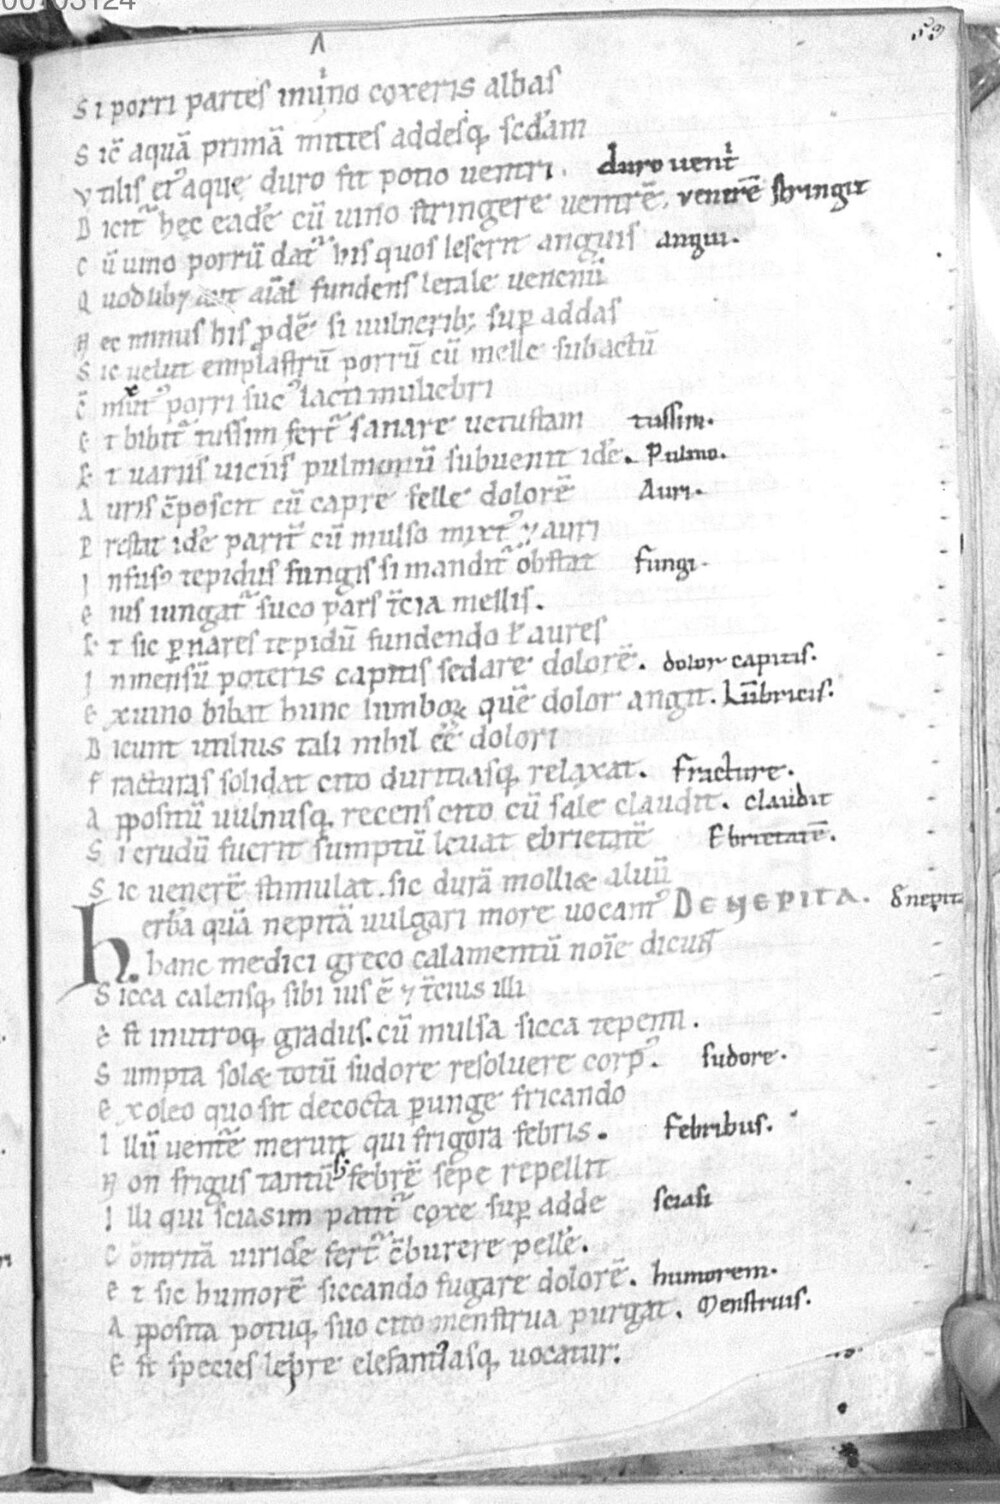 00103124
53
Si porri partes in uino coxeris albas
Sic̄ aquā primā mittes addesq; scd̄am
Vtilis et̾ aquę duro fit potio uentri. duro uent̾
Dicit᷑ hęc eadē cū uino stringere uentrē. ventrē stringit
Cū uino porrū dat᷑ his quos lesert̄ anguis angui.
Quodlibȝ aut aīal fundens letale uenenū
Nec minus his ꝓdē si uulneribȝ suꝑ addas
Sic uelut emplastrū porrū cū melle subactū
C̄ mixt̾ porri suc̾ lacti muliebri
Et bibit᷑ tussim fert᷑ sanare uetustam tussim.
Et uariis uiciis pulmonū subuenit idē. Pulmo.
Auris c̄poscit cū capre felle dolorē Auri.
Prestat idē parit᷑ cū mulso mixt̾ ⁊ auri
Infus̾ tepidus fungis si mandit᷑ obstat fungi.
Eius iungat᷑ suco pars t̄cia mellis.
Et sic ꝑ nares tepidū fundendo ł aures
Inmensū poteris capitis sedare dolorē. dolor capitis.
Ex uino bibat hunc lumboꝝ quē dolor angit. Lūbricis.
Dicunt utilius tali nihil eē dolori
Fracturas solidat cito duritiasq; relaxat. fracture.
Appositū uulnusq; recens cito cū sale claudit. claudit
Si crudū fuerit sumptū leuat ebrietatē Ebrietatē.
Sic uenerē stimulat. sic durā molliæ aluū
Herbā quā neptitā uulgari more uocam̾ DE NEPITA. đ nepita
hanc medici greco calamentū noīe dicunt
Sicca calensq; sibi ius ē ⁊ t̄cius illi
Est in utroq; gradus. cū mulsa sicca tepenti.
Sumpta solæ totū sudore resoluere corp̾. sudore.
Ex oleo quo sit decocta ꝑunge fricando
Illū uentē merunt qui frigora febris. febribus.
Non frigus tantū s; febrē sepe repellit
Illi qui sciasim patit᷑ coxe suꝑ adde sciasi
Contritā uiridē fert᷑ c̄burere pellē.
Et sic humorē siccando fugare dolorē. humorem.
Apposita potuq; suo cito menstrua purgat. Menstruis.
Est species lepre elefantiasq; uocatur.